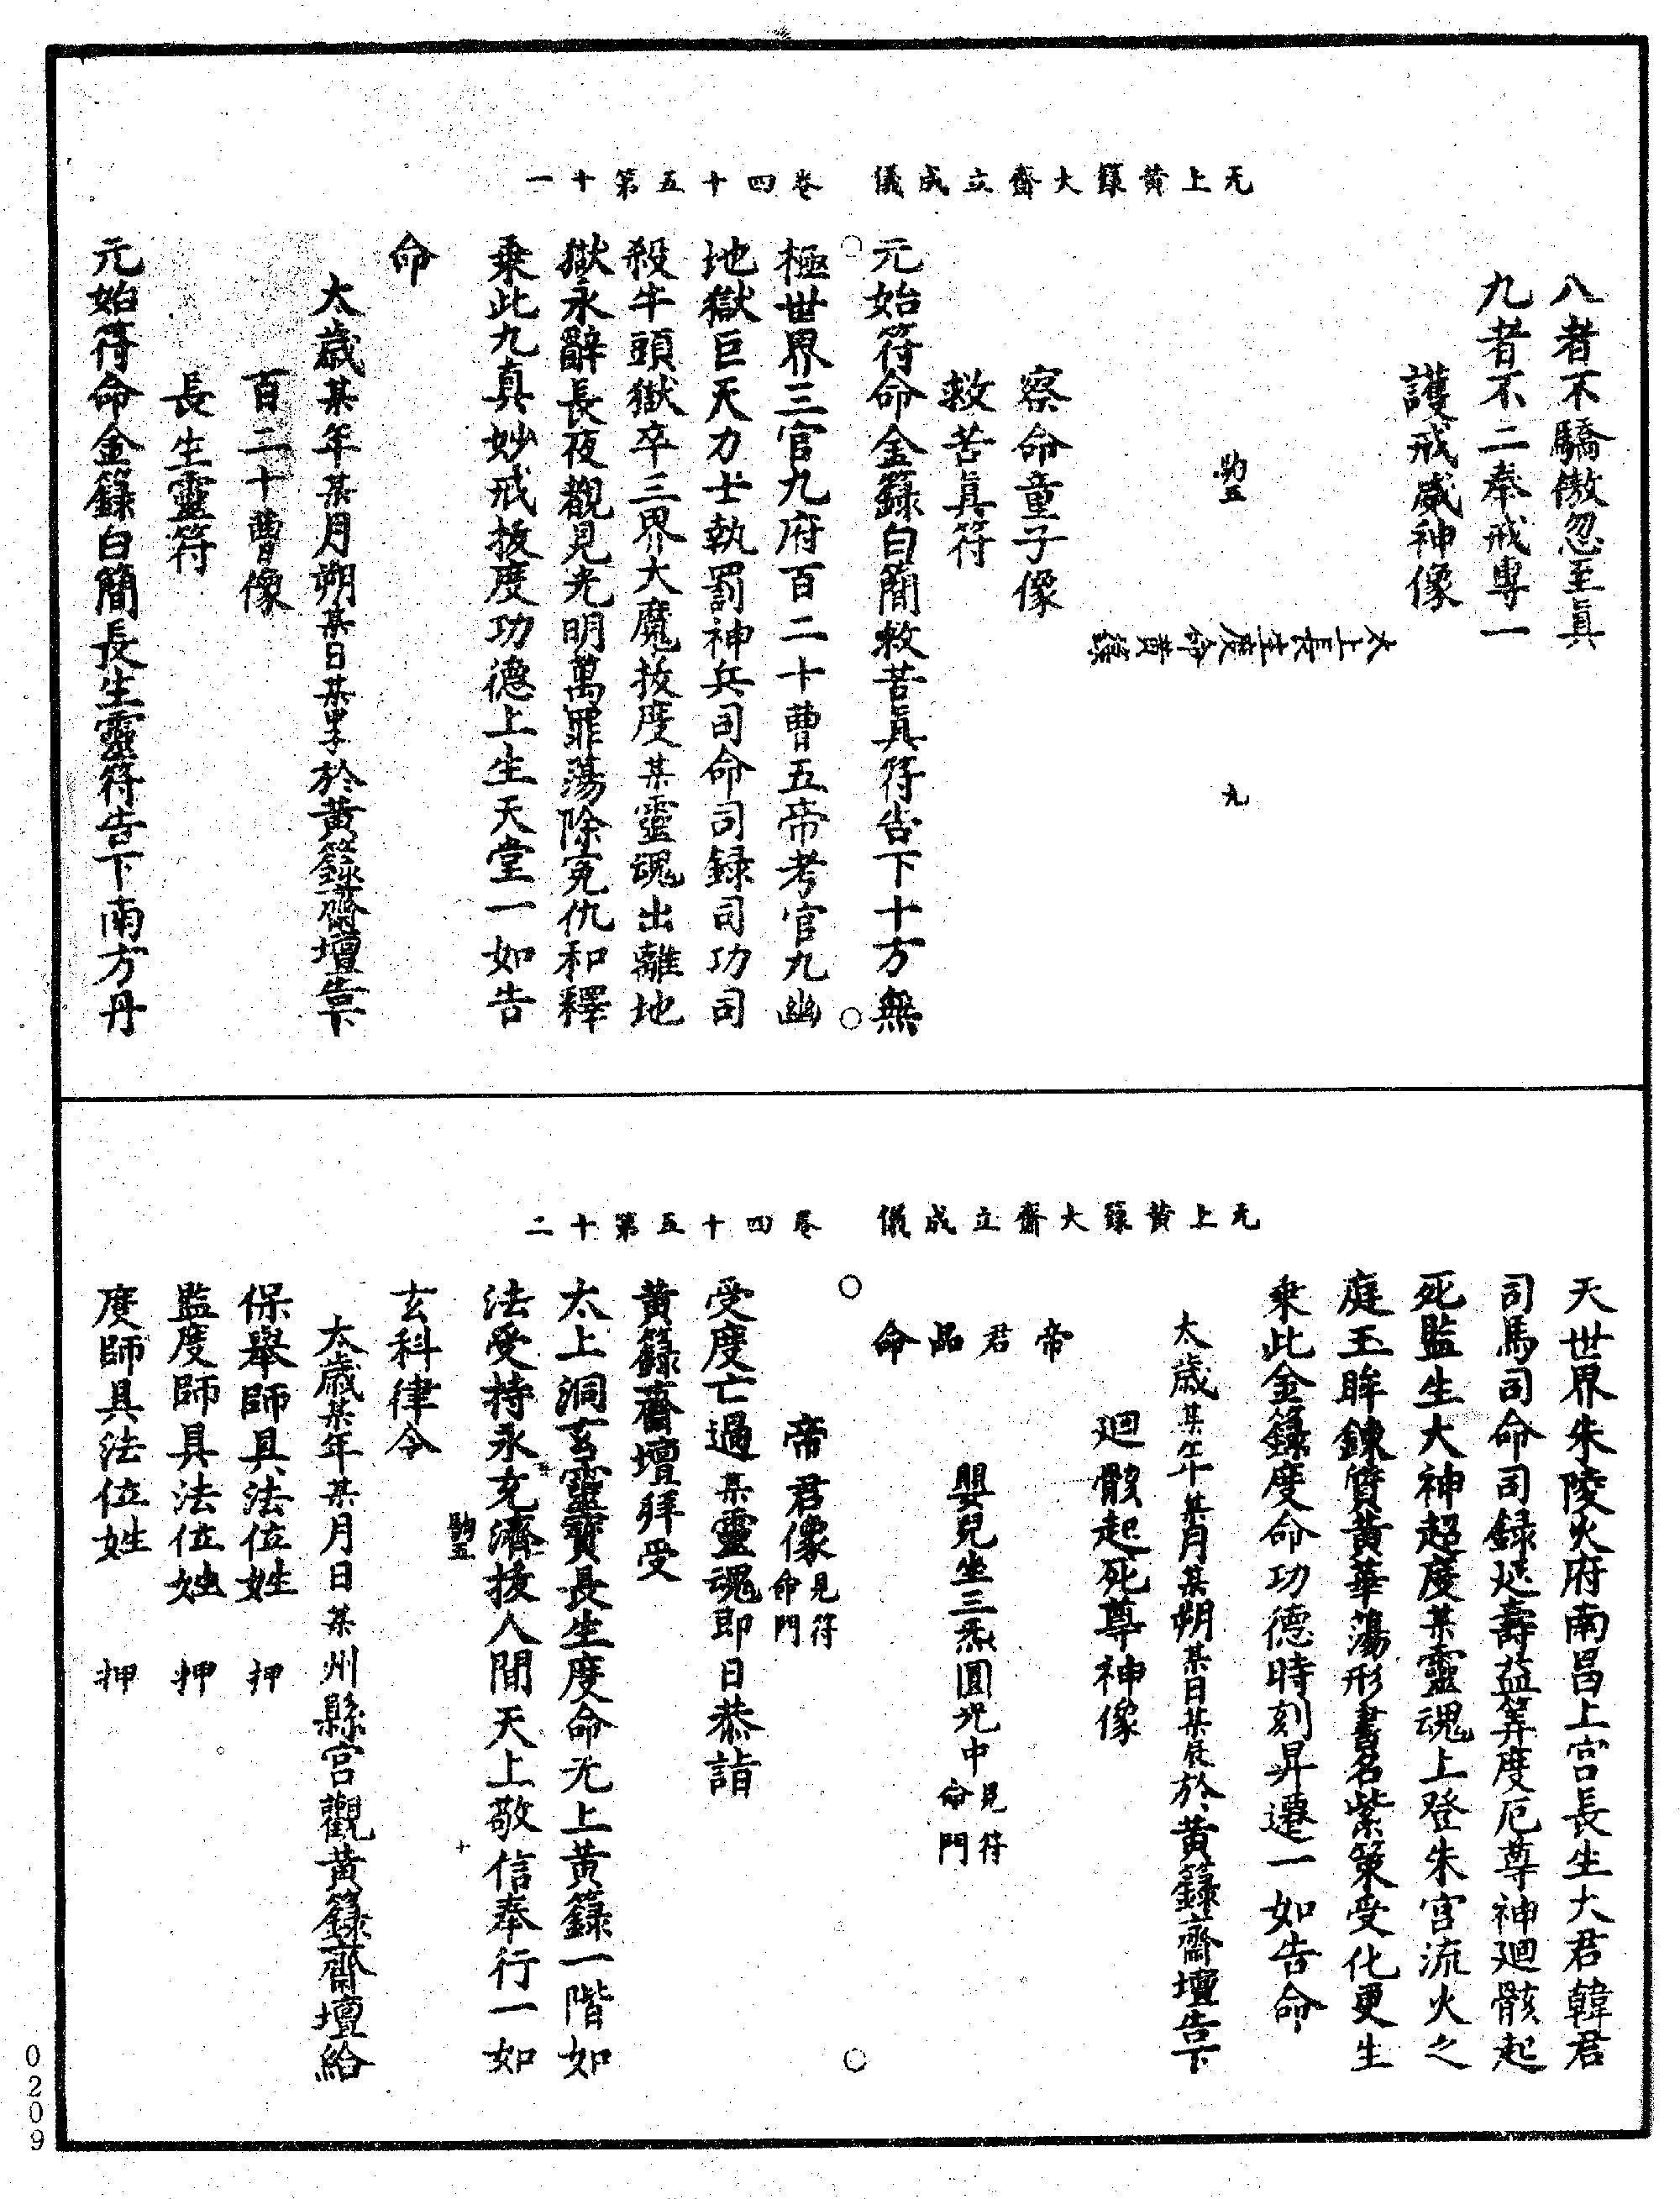 无上黃籙大齋立成儀　卷四十五第十一
八者不驕傲忽至真
九者不二奉戒專一
護戒威神像
太上長生度命黃籙
駒五　九
察命童子像
救苦真符
元始符命金籙白簡救苦真符告下十方無
極世界三官九府百二十曹五帝考官九幽
地獄巨天力士執罰神兵司命司録司功司
殺牛頭獄卒三界大魔拔度某靈魂出離地
獄永辭長夜觀見光明萬罪蕩除冤仇和釋
乗此九真妙戒拔度功德上生天堂一如告
命
太歲某年某月朔某日某甲子於黃籙齋壇告下
百二十曹像
長生靈符
元始符命金籙白簡長生靈符告下南方丹
无上黃籙大齋立成儀　卷四十五第十二
天世界朱陵火府南昌上宮長生大君韓君
司馬司命司録延壽益筭度厄尊神廻骸起
死監生大神超度某靈魂上登朱宮流火之
庭玉眸鍊質黃華蕩形書名紫策受化更生
乗此金籙度命功德時刻昇遷一如告命
太歲某年某月某朔某日某辰於黃籙齋壇告下
廻骸起死尊神像
帝君品命
嬰兒坐三炁圓光中見符命門
帝君像見符命門
受度亡過某靈魂即日恭詣
黃籙齋壇拜受
太上洞玄靈寶長生度命无上黃籙一階如
法受持永充濟拔人間天上敬信奉行一如
駒五　十
玄科律令
太歲某年某月日某州縣宮觀黃籙齋壇給
保舉師具法位姓　押
監度師具法位姓　押
度師具法位姓　押
0209